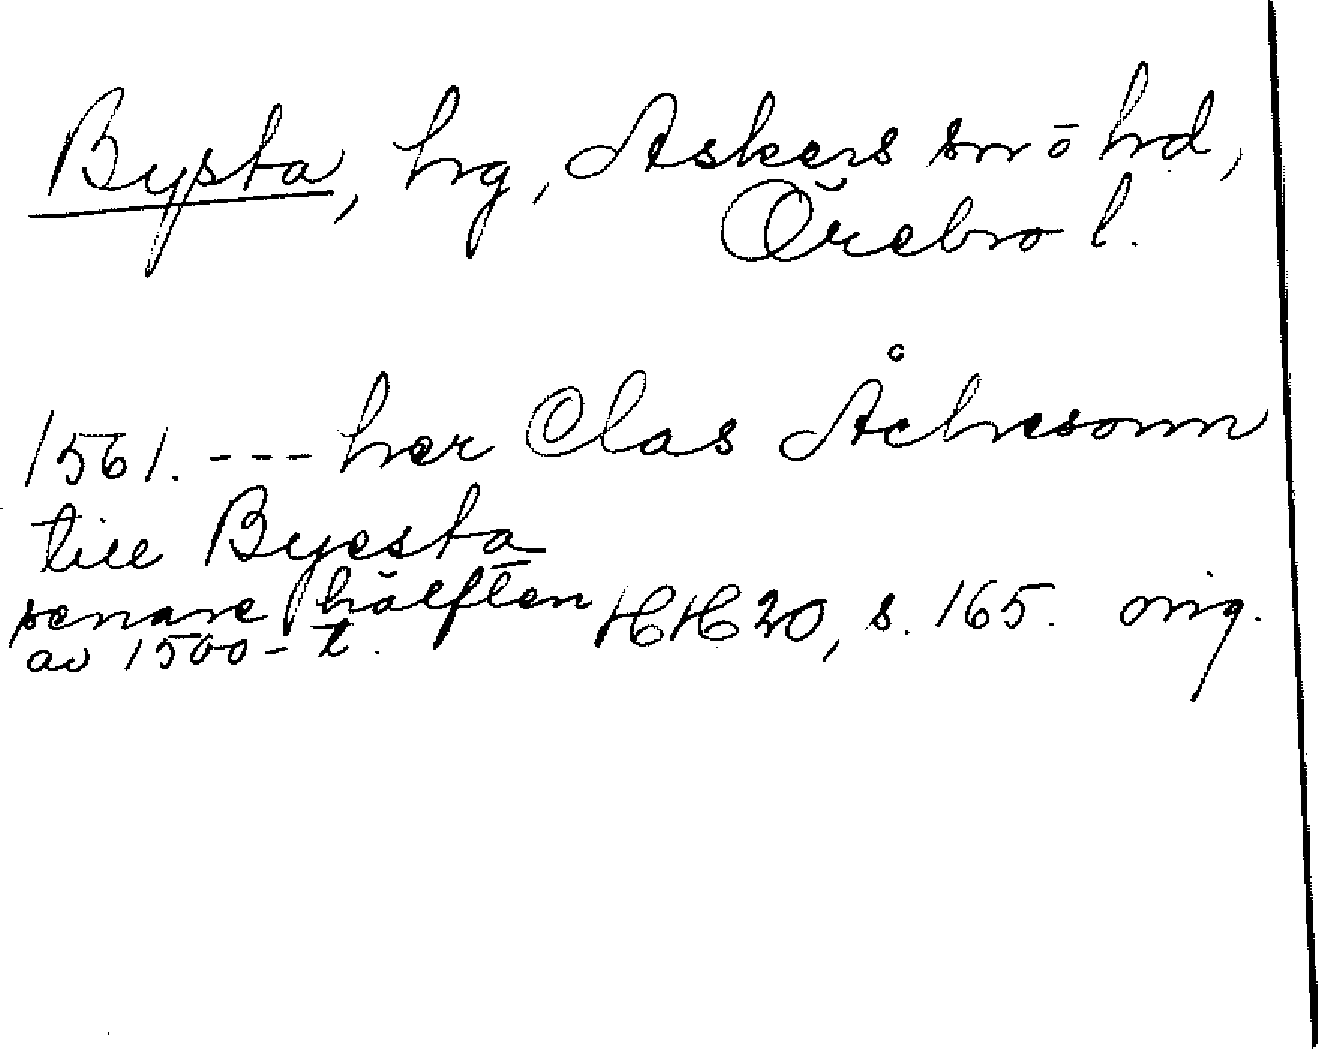 Bysta, hg, Askers sn o hd,
Örebro l.
1561. --- her Clas Åchesonn
till Byesta
senare hälften HH 20, s. 165. orig.
av 1500-t.